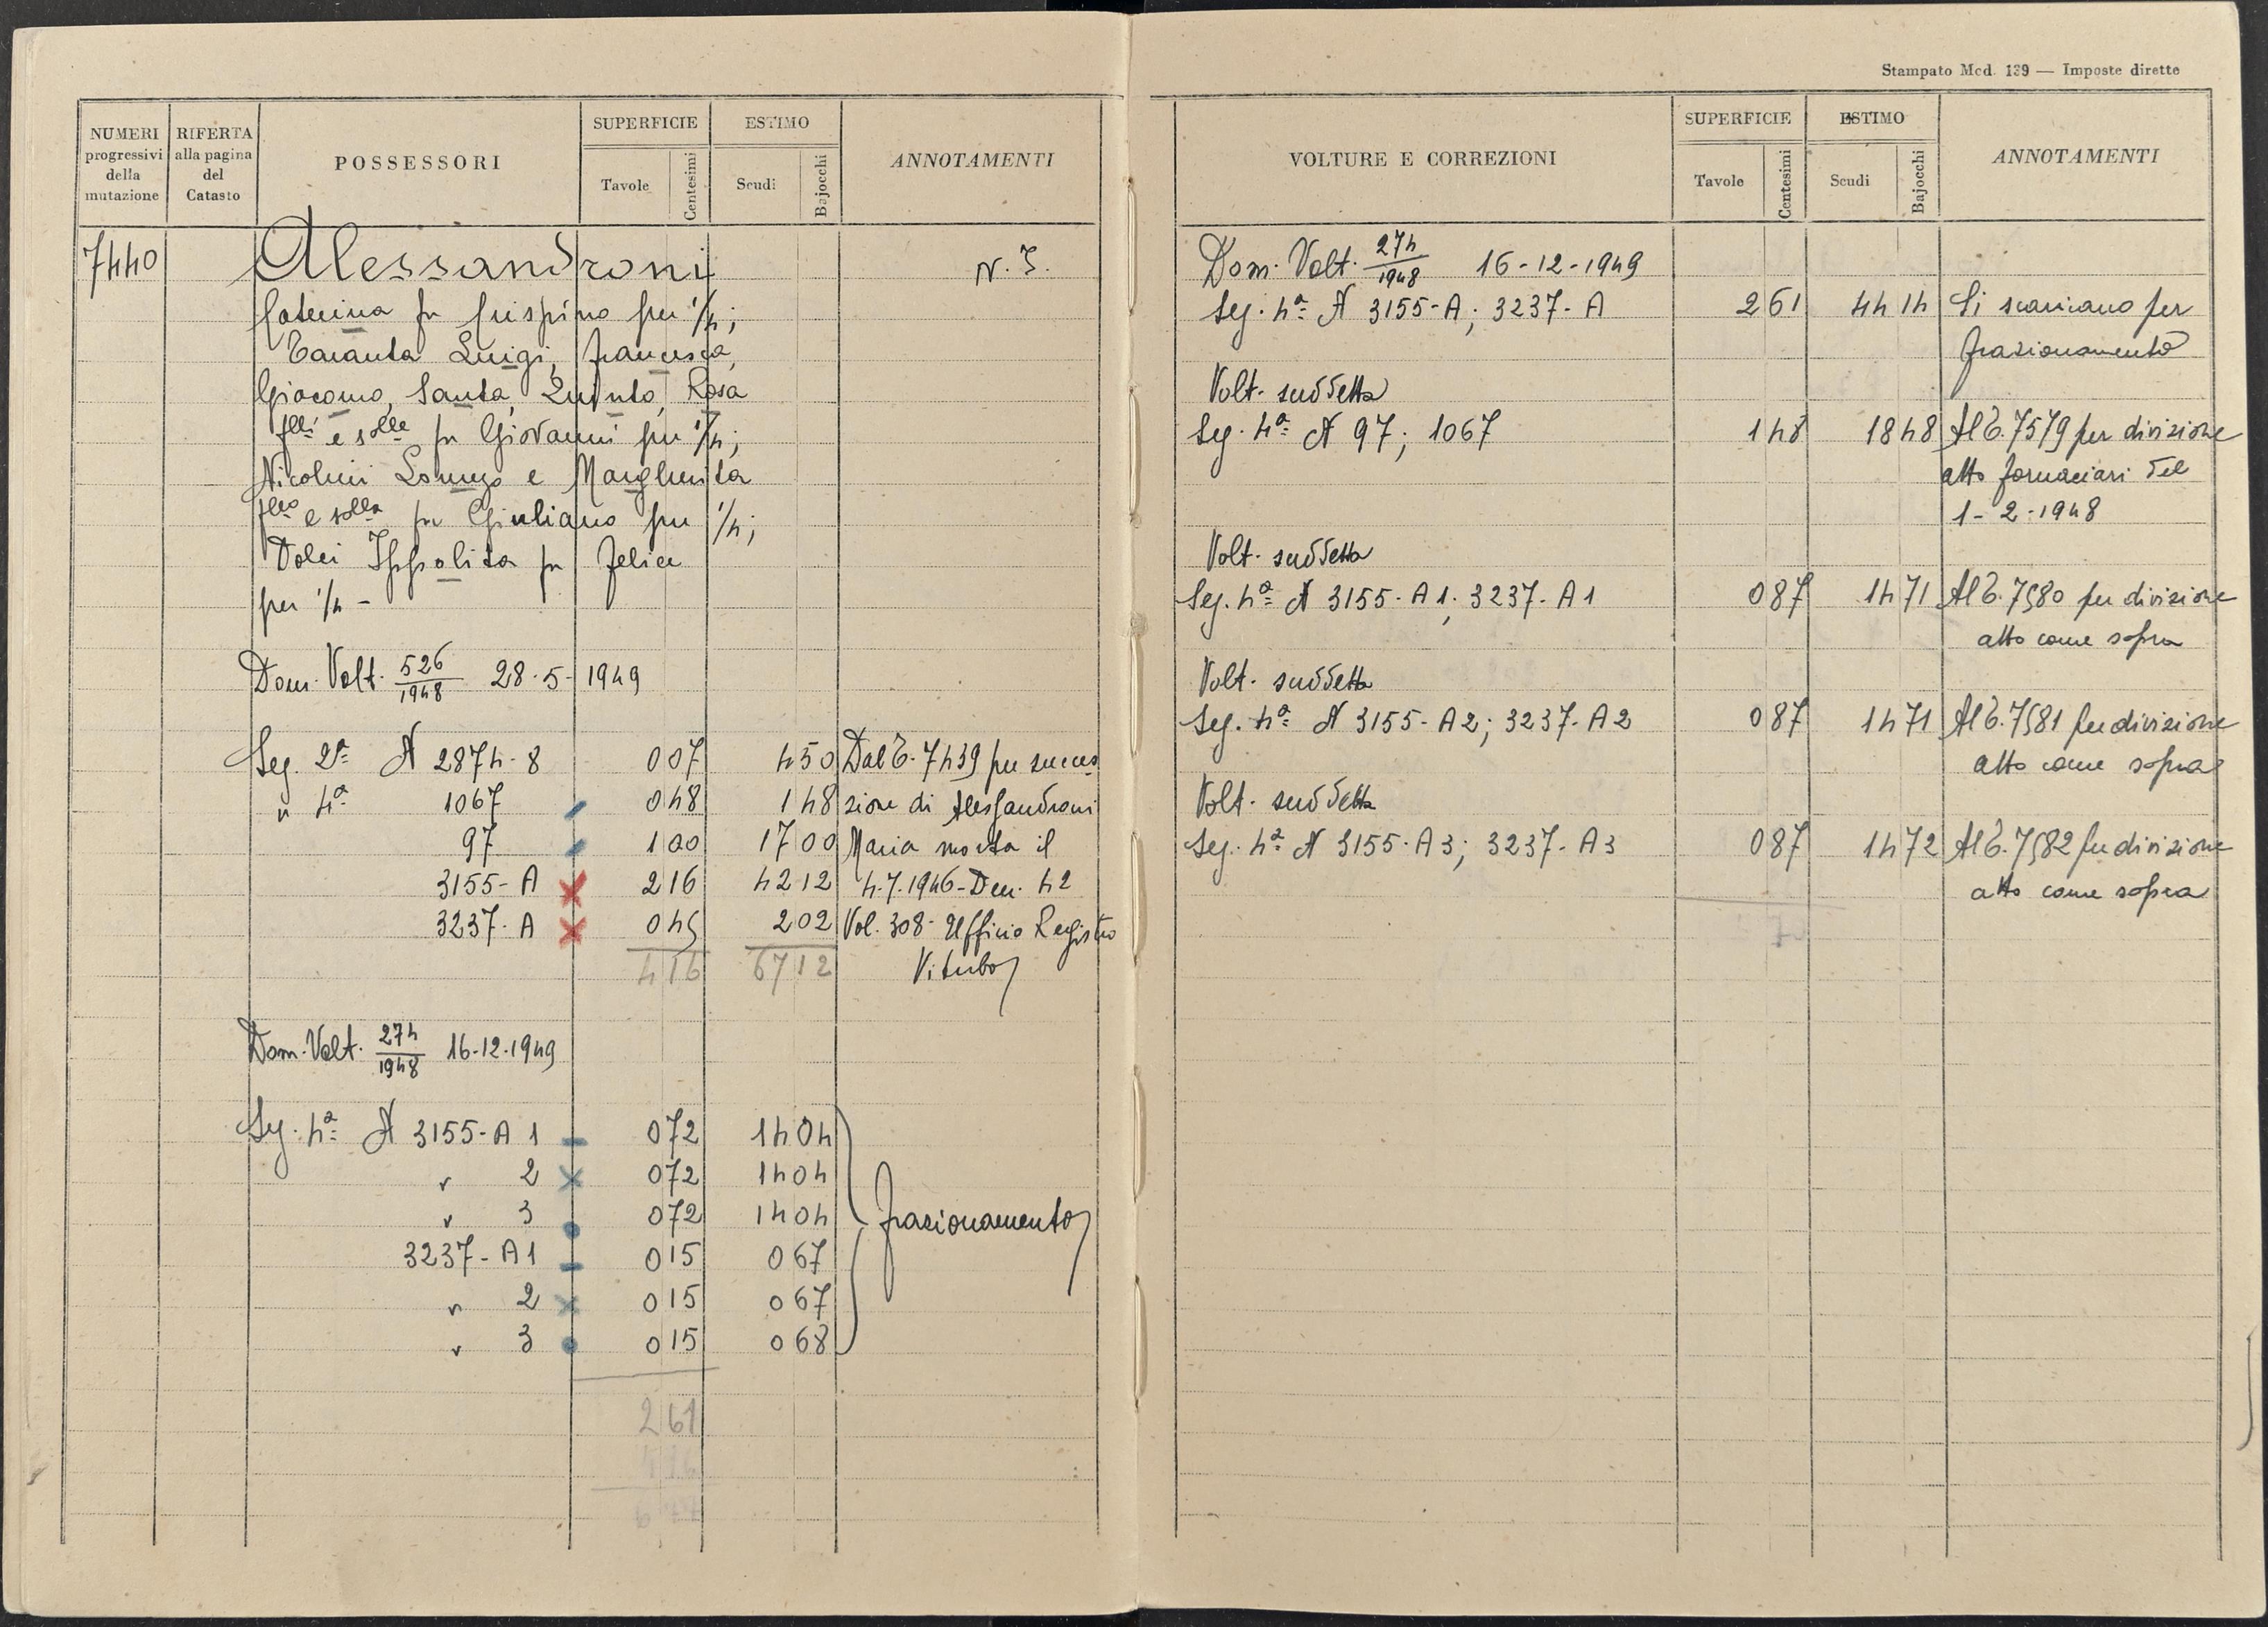 Stampato Mod. 139 — Imposte dirette
NUMERI progressivi della mutazione
RIFERTA alla pagina del Catasto
POSSESSORI
SUPERFICIE
Tavole
Centesimi
ESTIMO
Scudi
Bajocchi
ANNOTAMENTI
7440 Alessandroni N. I.
Caterina fu Crispino per 1/4;
Taranta Luigi, Francesca,
Giacomo, Santa, Quinto, Rosa
flli eslle fu Giovanni per 1/4;
Nicolini Lorenzo e Margherita
fllo e solla fu Giuliano per 1/4;
Dolci Ippolita fu Felice
per 1/4 -
Dom. Volt. 526/1948 28-5-1949
Seg. 2ª N 2874-8 0 07 4 50 Dal C. 7439 per succes
" 4ª 1067 0 48 1 48 sione di Alessandroni
97 1 00 17 00 Maria morta il
3155-A 2 16 42 12 4.7.1946 - Den. 42
3237-A 0 45 2 02 Vol. 308 - Ufficio Registro
4 16 67 12 Viterbo
Dom. Volt. 274/1948 16-12-1949
Seg. 4ª N 3155-A 1 0 72 14 04
" 2 0 72 14 04
" 3 0 72 14 04 frazionamento
3237-A1 0 15 0 67
" 2 0 15 0 67
" 3 0 15 0 68
2 61
VOLTURE E CORREZIONI
SUPERFICIE
Tavole
Centesimi
ESTIMO
Scudi
Bajocchi
ANNOTAMENTI
Dom. Volt. 274/1948 16-12-1949
Seg. 4ª N 3155-A; 3237-A 2 61 44 14 Si scaricano per
frazionamento
Volt. suddetta
Seg. 4ª N 97; 1067 1 48 18 48 Al C. 7579 per divisione
atto Fornaciari del
1-2-1948
Volt. suddetta
Seg. 4ª N 3155-A1; 3237-A1 0 87 14 71 Al C. 7580 per divisione
atto come sopra
Volt. suddetta
Seg. 4ª N 3155-A2; 3237-A2 0 87 14 71 Al C. 7581 per divisione
atto come sopra
Volt. suddetta
Seg. 4ª N 3155-A3; 3237-A3 0 87 14 72 Al C. 7582 per divisione
atto come sopra